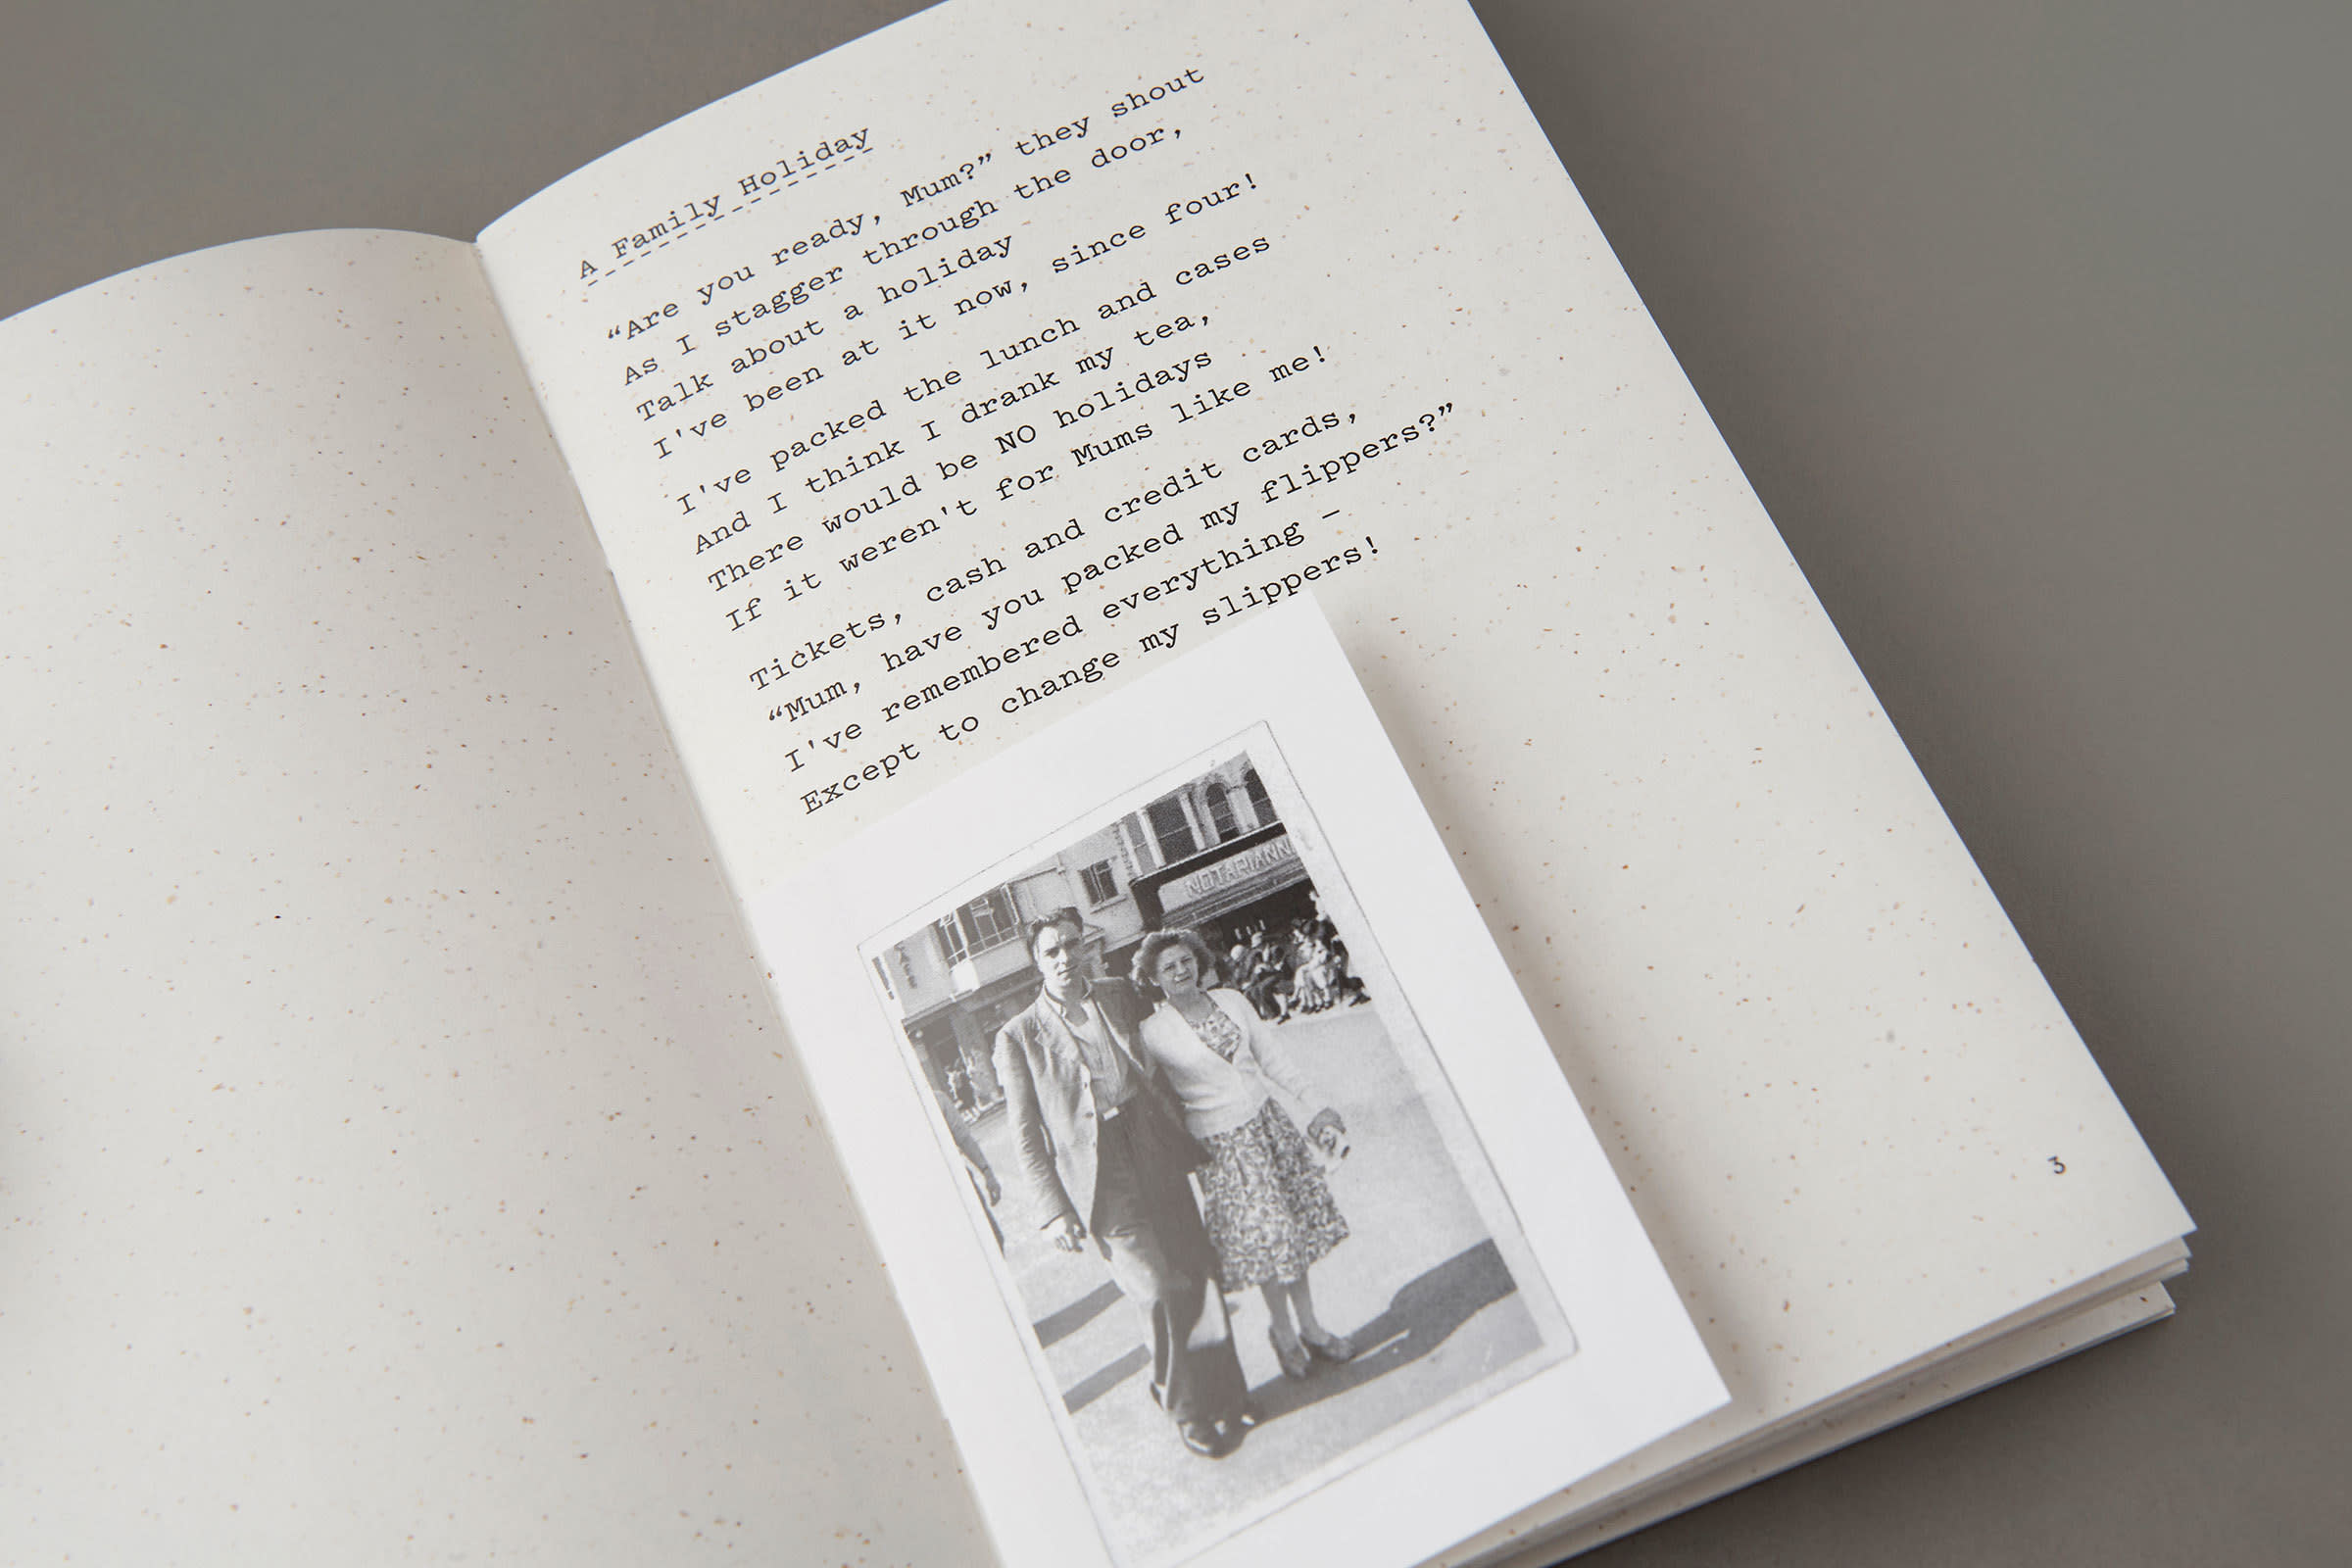 A Family Holiday
“Are you ready, Mum?” they shout
As I stagger through the door,
Talk about a holiday
I've been at it now, since four!
I've packed the lunch and cases
And I think I drank my tea,
There would be NO holidays
If it weren't for Mums like me!
Tickets, cash and credit cards,
“Mum, have you packed my flippers?”
I've remembered everything –
Except to change my slippers!
NOTARIANN
3